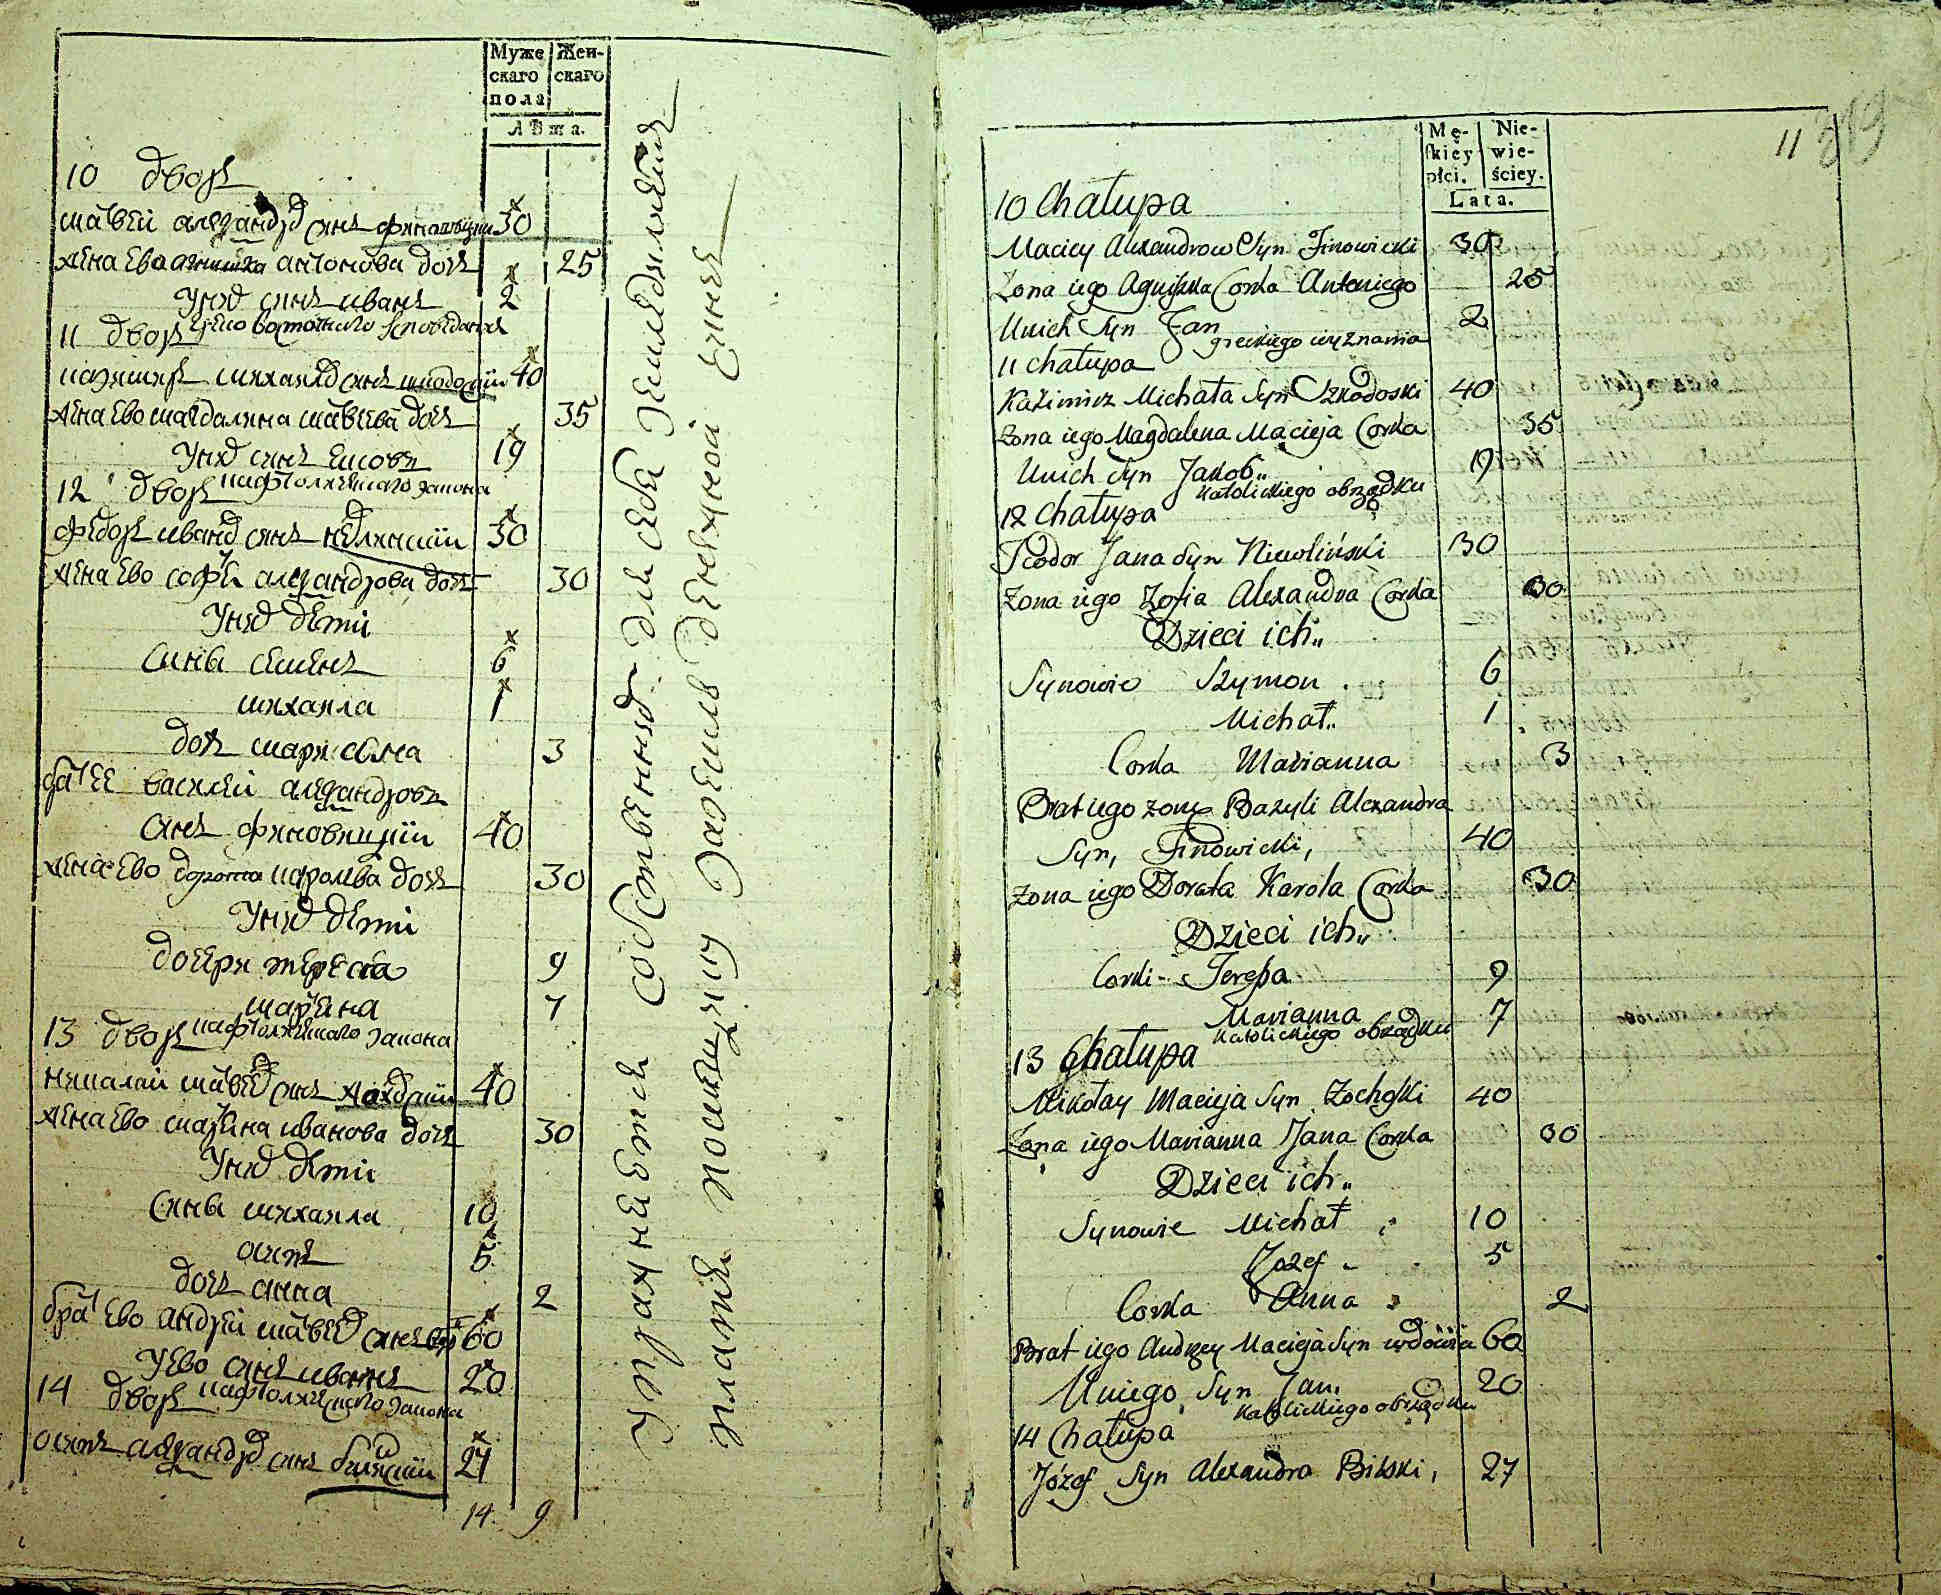 Муже
скаго
пола
Жен-
скаго
Лѣта.
10 дворъ
матвей александръ синъ финовицки 30
жена ево агнишка антонова дочь 25
у них синъ иванъ 2
11 дворъ греко восточнаго исповеданія
казимиръ михаила синъ шкодоскіи 40
жена ево магдалина матвеева дочь 35
у них синъ яковъ 19
12 дворъ католическаго закона
федоръ ивана синъ неделинскіи 30
жена ево софія александрова дочь 30
у них дети
сины семенъ 6
михаила 1
дочь мариянна 3
братъ ее василей александровъ
синъ финовицкіи 40
жена ево дорота каролева дочь 30
у них дети
дочери тереса 9
марина 7
13 дворъ католическаго закона
николай матвея синъ жохоскіи 40
жена ево марина иванова дочь 30
у них дети
сины михаила 10
осипъ 5
дочь анна 2
братъ ево андрей матвея синъ вдовъ 60
у ево синъ иванъ 20
14 дворъ католическаго закона
осипъ александра синъ билскіи 27
14 9
упражняется собственныя для себя земледелія
платя помещику
денежной чинш
Mę-
skiey
płci.
Nie-
wie-
ściey.
Lata.
11 389
10 Chałupa
Maciey Alexandrow Syn Finowicki 30
Zona iego Agniszka Corka Antoniego 25
Unich Syn Jan 2
greckiego wyznania
11 chałupa
Kazimirz Michała Syn Szkodoski 40
Zona iego Magdalena Macieja Corka 35
Unich Syn Jakob 19
Katolickiego obrządku
12 Chałupa
Teodor Jana Syn Niewliński 30
Zona iego Zofia Alexandra Corka 30
Dzieci ich
Synowie Szymon 6
Michał 1
Corka Marianna 3
Brat iego zony Bazyli Alexandra
Syn, Finowicki, 40
Zona iego Dorota Karola Corka 30
Dzieci ich
Corki Teressa 9
Marianna 7
Katolickiego obrządku
13 Chałupa
Mikołay Macieja Syn Zochoski 40
Zona iego Marianna Jana Corka 30
Dzieci ich
Synowie Michał 10
Jozef 5
Corka Anna 2
Brat iego Andrzey Macieja Syn wdowiec 60
Uniego Syn Jan 20
Katolickiego obrządku
14 Chałupa
Józef Syn Alexandra Bilski, 27